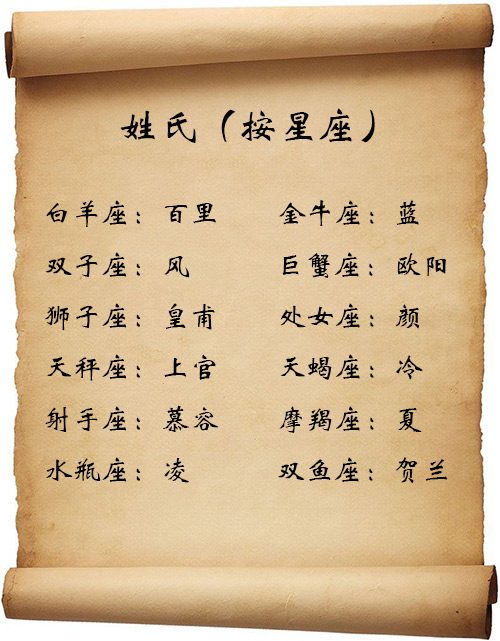 姓氏（按星座）
白羊座：百里 金牛座：蓝
双子座：风 巨蟹座：欧阳
狮子座：皇甫 处女座：颜
天秤座：上官 天蝎座：冷
射手座：慕容 摩羯座：夏
水瓶座：凌 双鱼座：贺兰